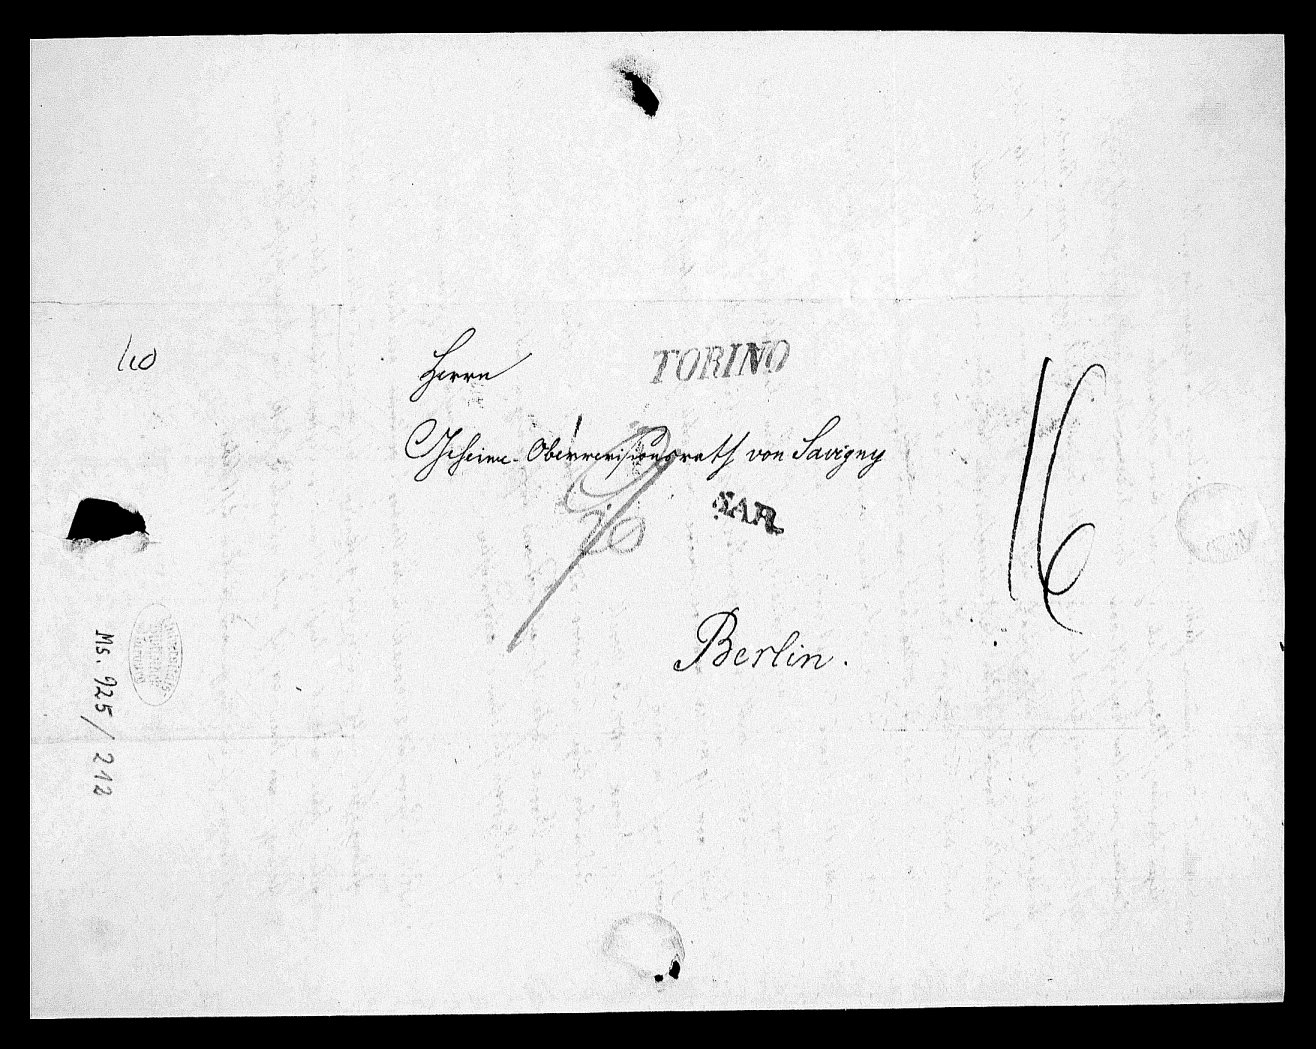 Herrn
TORINO
Geheime-Oberrevisionsrath von Savigny
SAR
16
Berlin.
Ms. 925/212